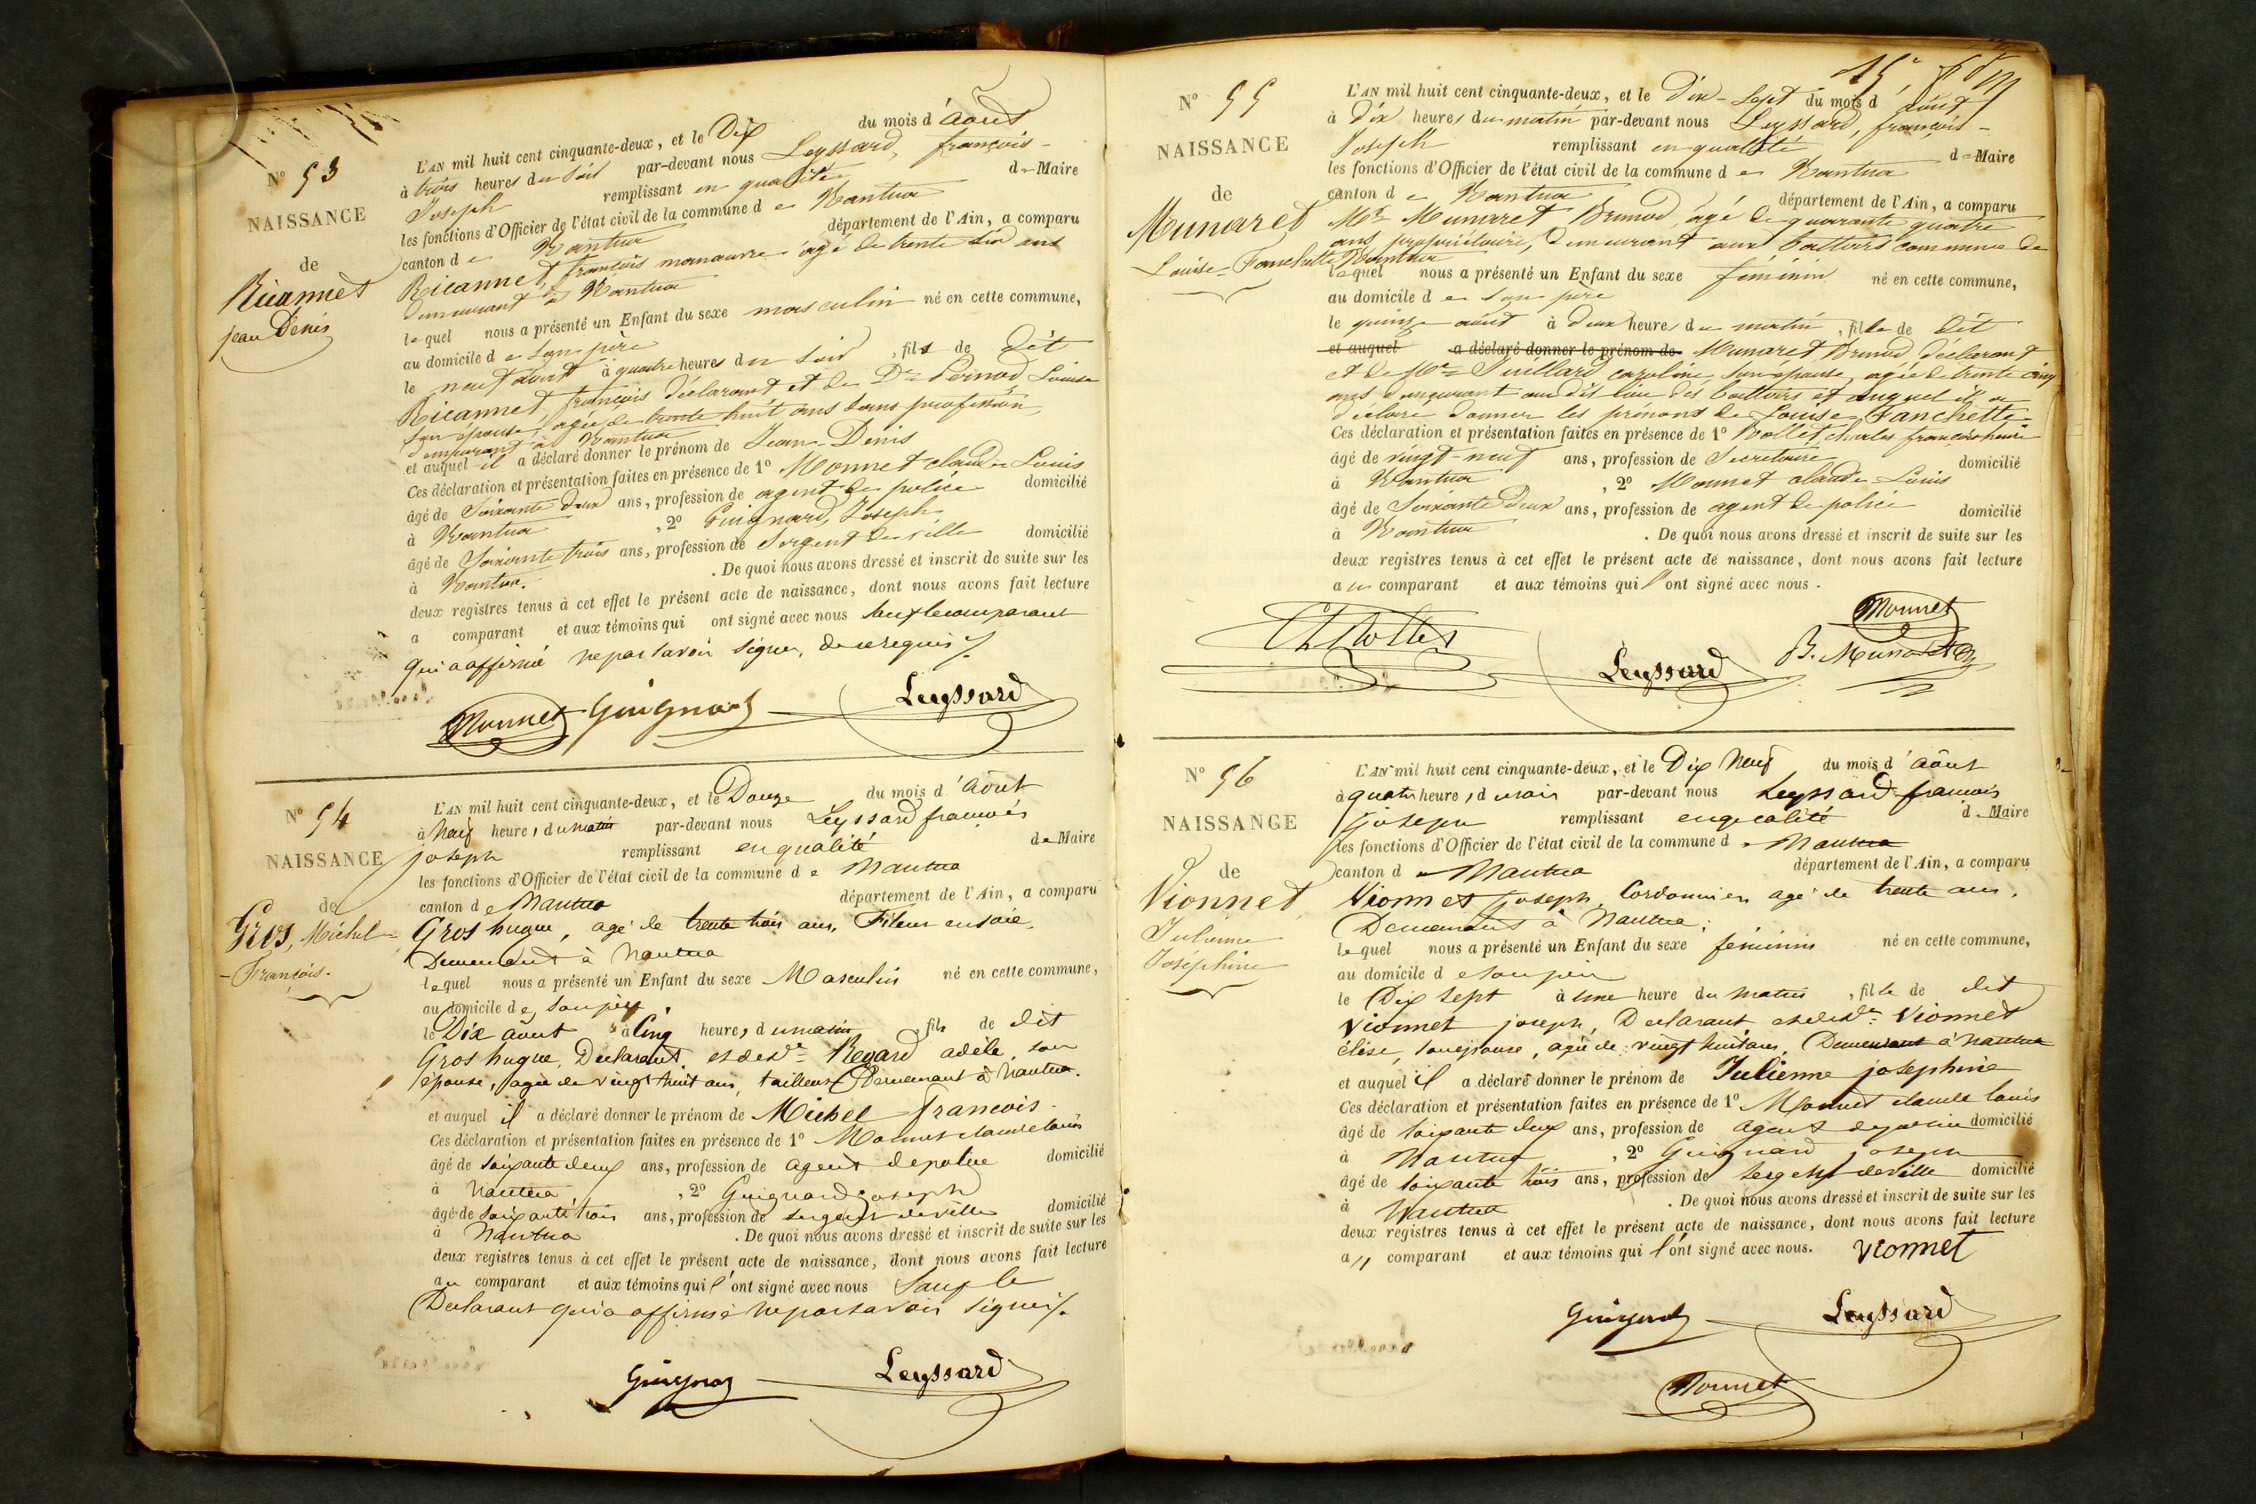 N° 53
NAISSANCE
de
Ricannet
jean Denis
L'AN mil huit cent cinquante-deux, et le Dix du mois d'août
à trois heures du soir par-devant nous Leyssard, françois-
Joseph remplissant en qualité de Maire
les fonctions d'Officier de l'état civil de la commune de Nantua
canton de Nantua département de l'Ain, a comparu
Ricannet, françois manœuvre âgé de trente six ans
demeurant à Nantua
lequel nous a présenté un Enfant du sexe masculin né en cette commune,
au domicile de son père
le neuf août à quatre heures du soir, fils de dit
Ricannet françois déclarant et de De Pernod, Louise
son épouse, agée de trente huit ans sans profession,
demeurant à Nantua
et auquel il a déclaré donner le prénom de Jean-Denis
Ces déclaration et présentation faites en présence de 1° Monnet claude Louis
âgé de Soixante deux ans, profession de agent de police domicilié
à Nantua, 2° Guignard, Joseph
âgé de Soixante trois ans, profession de Sergent de ville domicilié
à Nantua. De quoi nous avons dressé et inscrit de suite sur les
deux registres tenus à cet effet le présent acte de naissance, dont nous avons fait lecture
a comparant et aux témoins qui ont signé avec nous sauf le comparant
qui a affirmé ne pas savoir signer, de ce requis
Monnet Guignard Leyssard
N° 54
NAISSANCE
de
Gros, Michel-
-François.
L'AN mil huit cent cinquante-deux, et le Douze du mois d'août
à Neuf heures du matin par-devant nous Leyssard françois
joseph remplissant en qualité de Maire
les fonctions d'Officier de l'état civil de la commune de Nantua
canton de Nantua département de l'Ain, a comparu
Gros hugue, agé de trente trois ans, Fileur en soie,
Demeurant à Nantua
lequel nous a présenté un Enfant du sexe Masculin né en cette commune,
au domicile de son père
le Dix août à Cinq heures du matin, fils de dit
Gros hugue, Declarant, et de de Regard adèle, son
épouse, agée de vingt huit ans, tailleuse Demeurant à Nantua.
et auquel il a déclaré donner le prénom de Michel françois
Ces déclaration et présentation faites en présence de 1° Monnet claude louis
âgé de soixante deux ans, profession de agent de police domicilié
à Nantua, 2° Guignard joseph
âgé de soixante trois ans, profession de sergent de ville domicilié
à Nantua. De quoi nous avons dressé et inscrit de suite sur les
deux registres tenus à cet effet le présent acte de naissance, dont nous avons fait lecture
au comparant et aux témoins qui l'ont signé avec nous Sauf le
Declarant qui a affirmé ne pas savoir signer
Guignard Leyssard
N° 55
NAISSANCE
de
Munaret
Louise-Fanchette
L'AN mil huit cent cinquante-deux, et le Dix-Sept du mois d'août
à Dix heures du matin par-devant nous Leyssard, françois-
Joseph remplissant en qualité de Maire
les fonctions d'Officier de l'état civil de la commune de Nantua
canton de Nantua département de l'Ain, a comparu
Mr Munaret Brunod, âgé de quarante quatre
ans propriétaire, demeurant aux battoirs commune de
Nantua
lequel nous a présenté un Enfant du sexe féminin né en cette commune,
au domicile de son père
le quinze août à deux heures du matin, fille de dit
et auquel a déclaré donner le prénom de Munaret Brunod, déclarant
et de Juillard caroline, son épouse, agée de trente cinq
ans demeurant au dit lieu des battoirs et auquel il a
déclaré donner les prénoms de Louise Fanchette-
Ces déclaration et présentation faites en présence de 1° Rollet charles françois henri
âgé de vingt-neuf ans, profession de Secrétaire domicilié
à Nantua, 2° Monnet claude-Louis
âgé de Soixante deux ans, profession de agent de police domicilié
à Nantua. De quoi nous avons dressé et inscrit de suite sur les
deux registres tenus à cet effet le présent acte de naissance, dont nous avons fait lecture
au comparant et aux témoins qui l'ont signé avec nous.
Monnet
Ch Rollet Leyssard B. Munaret
N° 56
NAISSANCE
de
Vionnet,
Julienne
Joséphine
L'AN mil huit cent cinquante-deux, et le Dix Neuf du mois d'août
à quatre heures du soir par-devant nous Leyssard françois
joseph remplissant en qualité de Maire
les fonctions d'Officier de l'état civil de la commune de Nantua
canton de Nantua département de l'Ain, a comparu
Vionnet joseph, Cordonnier agé de trente ans,
Demeurant à Nantua;
lequel nous a présenté un Enfant du sexe féminin né en cette commune,
au domicile de son père
le Dix sept à une heure du matin, fille de dit
Vionnet joseph, Declarant et de de Vionnet
élise, son épouse, agée de vingt huit ans, Demeurant à Nantua
et auquel il a déclaré donner le prénom de Julienne josephine
Ces déclaration et présentation faites en présence de 1° Monnet claude louis
âgé de soixante deux ans, profession de agent de police domicilié
à Nantua, 2° Guignard joseph
âgé de soixante trois ans, profession de sergent de ville domicilié
à Nantua. De quoi nous avons dressé et inscrit de suite sur les
deux registres tenus à cet effet le présent acte de naissance, dont nous avons fait lecture
a comparant et aux témoins qui l'ont signé avec nous. Vionnet
Guignard Leyssard
Monnet